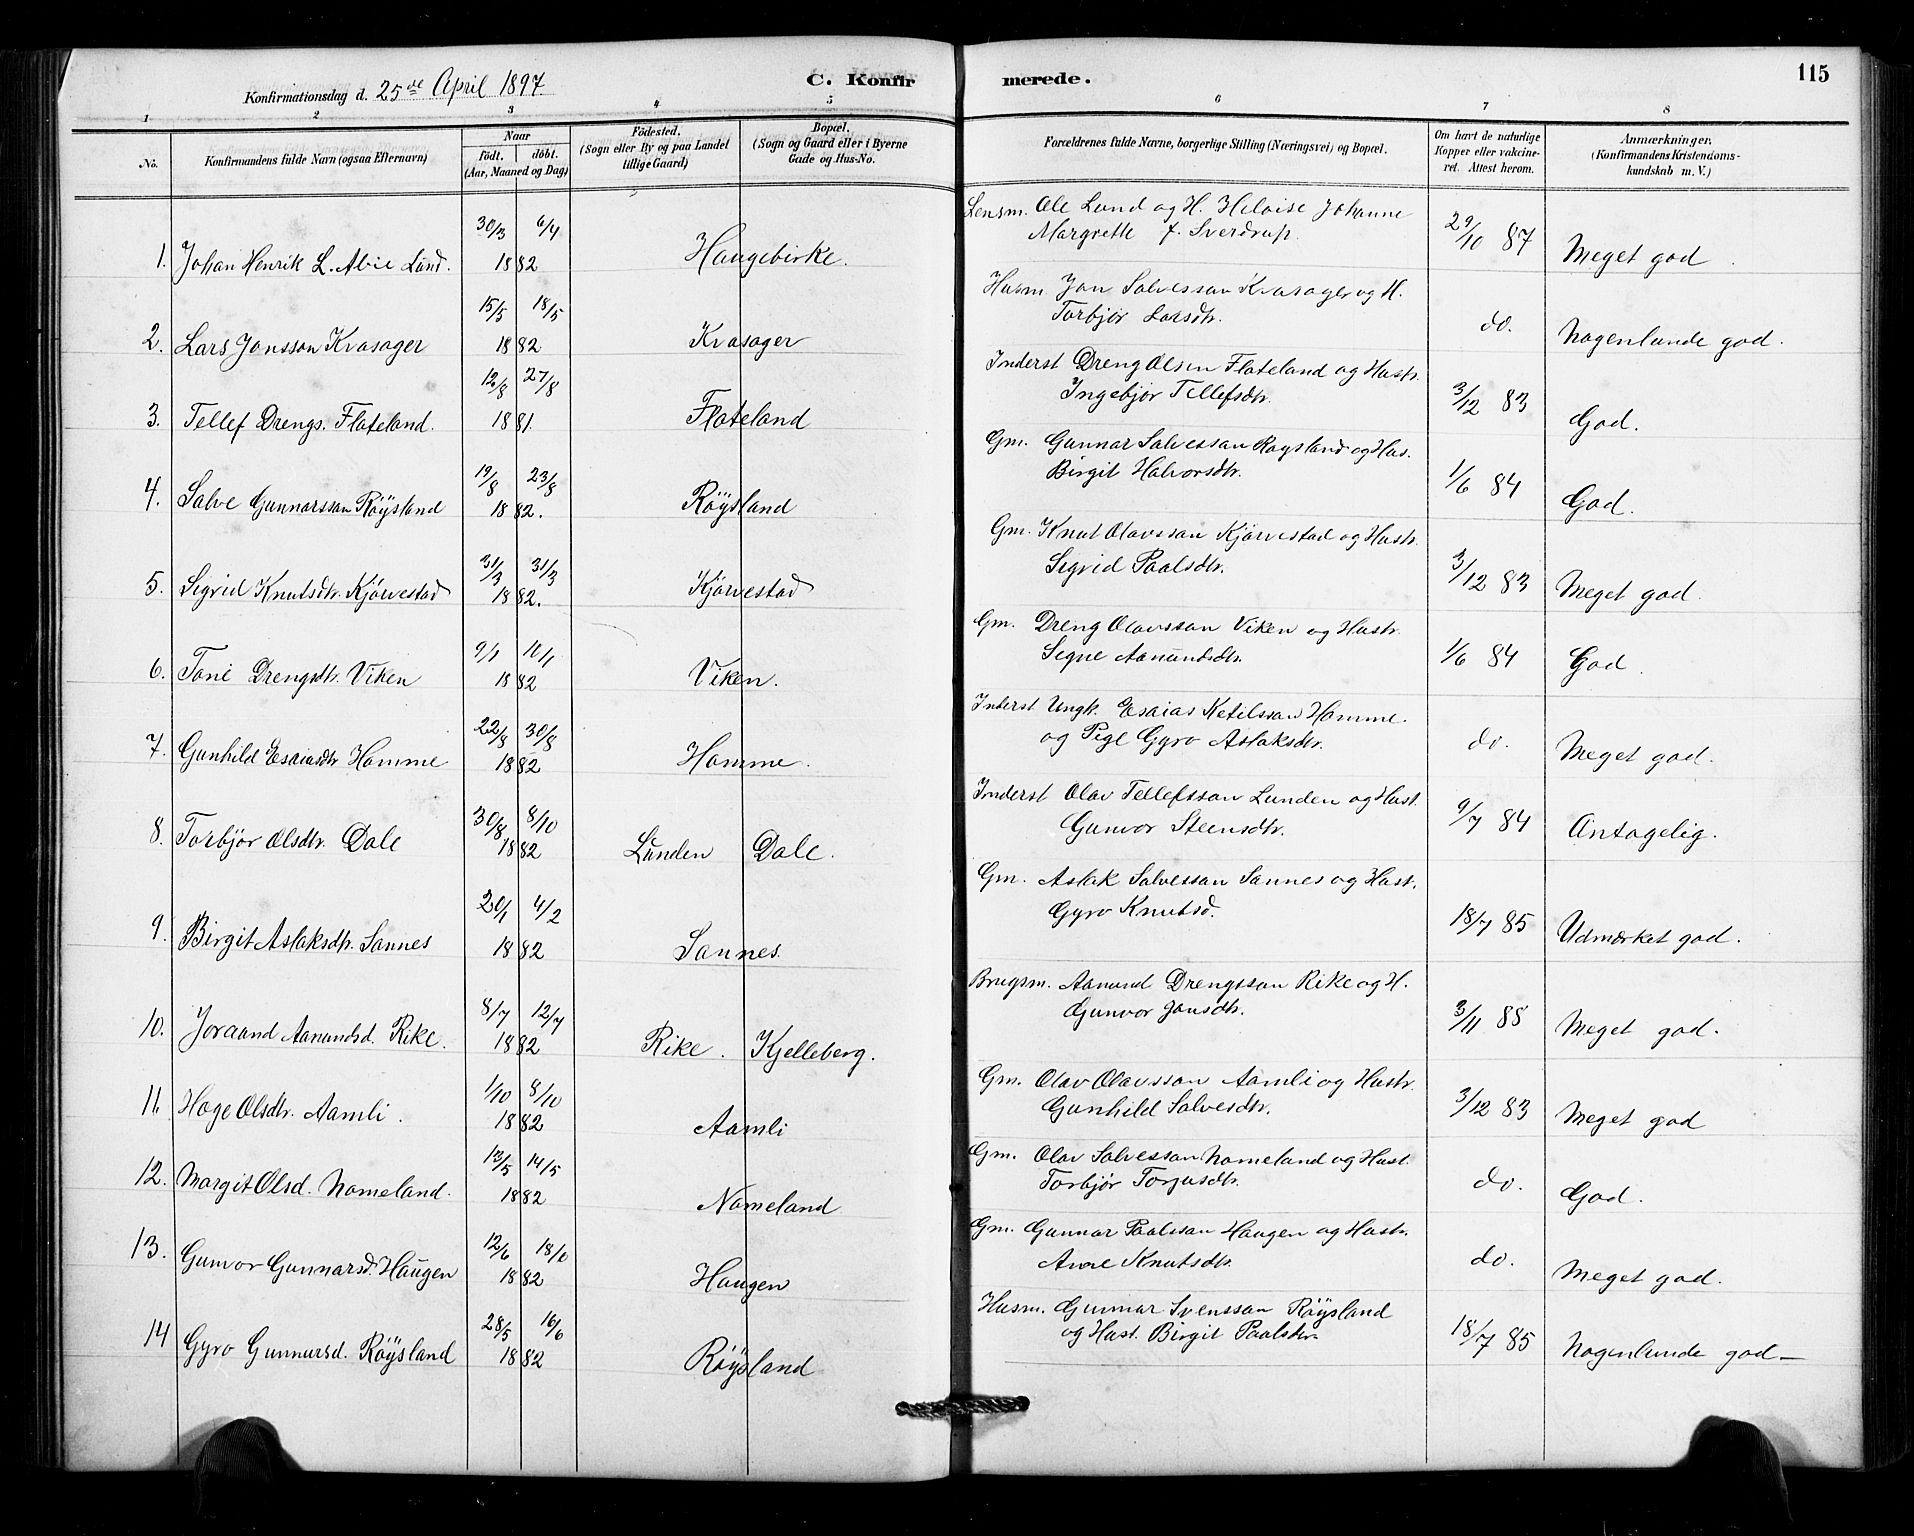 Konfirmationsdag d. 25de April 1897.
C. Konfirmerede.
115
1 2 3 4 5 6 7 8
No.
Konfirmandens fulde Navn (ogsaa Efternavn)
Naar
födt. döbt.
(Aar, Maaned og Dag)
Födested.
(Sogn eller By og paa Landet
tillige Gaard)
Bopæl.
(Sogn og Gaard eller i Byerne
Gade og Hus-No.
Forældrenes fulde Navne, borgerlige Stilling (Næringsvei) og Bopæl.
Om havt de naturlige
Kopper eller vakcine-
ret. Attest herom.
Anmærkninger.
(Konfirmandens Kristendoms-
kundskab m. V.)
30/3 6/4 Lensm. Ole Lund og H. Heloise Johanne
1. Johan Henrik L. Abie Lund. 1882 Haugebirke. Margrethe f. Sverdrup. 29/10 87 Meget god.
15/5 18/5 Husm. Jon Salvessan Kvasager og H.
2. Lars Jonsson Kvasager 1882 Kvasager Torbjör Larsdtr. do. Nogenlunde god.
12/8 27/8 Inderst Dreng Olsen Flateland og Hustr.
3. Tellef Drengs. Flateland. 1881. Flateland Ingebjör Tellefsdtr. 3/12 83 God.
19/8 23/8 Gm. Gunnar Salvessan Røysland og Hus.
4. Salve Gunnarssan Röysland 1882. Röysland Birgit Halvorsdtr. 1/6 84 God.
31/3 31/3 Gm. Knut Olavssan Kjörvestad og Hustr.
5. Sigrid Knutsdtr. Kjörvestad 1882. Kjörvestad Sigrid Paalsdtr. 3/12 83 Meget god.
9/1 10/1 Gm. Dreng Olavssan Viken og Hustr.
6. Tone Drengsdtr. Viken 1882 Viken. Signe Aanundsdtr. 1/6 84 God.
22/8 30/8 Inderst Ungk. Esaias Ketilssan Homme.
7. Gunhild Esaiasdtr Homme 1882 Homme. og Pige Gyro Aslaksdtr. do. Meget god.
30/8 8/10 Inderst Olav Tellefssan Lunden og Hust.
8. Torbjör Olsdtr. Dale 1882 Lunden Dale. Gunvor Steensdtr. 9/7 84 Antagelig.
20/1 4/2 Gm. Aslak Salvessan Sannes og Hustr.
9. Birgit Aslaksdtr. Sannes 1882 Sannes. Gyro Knutsd. 18/7 85 Udmærket god.
8/7 12/7 Brugsm. Aanund Drengssan Rike og H.
10. Joraand Aanundsd. Rike. 1882 Rike. Kjelleberg. Gunvor Jonsdtr. 3/11 85 Meget god.
1/10 8/10 Gm. Olav Olavssan Aamli og Hustr.
11. Hoge Olsdtr. Aamli. 1882 Aamli Gunhild Salvesdtr. 3/12 83 Meget god
13/5 14/5 Gm. Olav Salvessan Nomeland og Hust.
12. Margit Olsd. Nomeland. 1882 Nomeland Torbjör Torjusdtr. do. God.
12/6 18/6 Gm. Gunnar Paalssan Haugen og Hustr.
13. Gunvor Gunnarsd. Haugen 1882 Haugen Anne Knutsdtr. do. Meget god.
28/5 16/6 Husm. Gunnar Svenssan Röysland
14 Gyro Gunnarsd. Röysland 1882 Röysland og Hust. Birgit Paalsdtr. 18/7 85 Nogenlunde god—